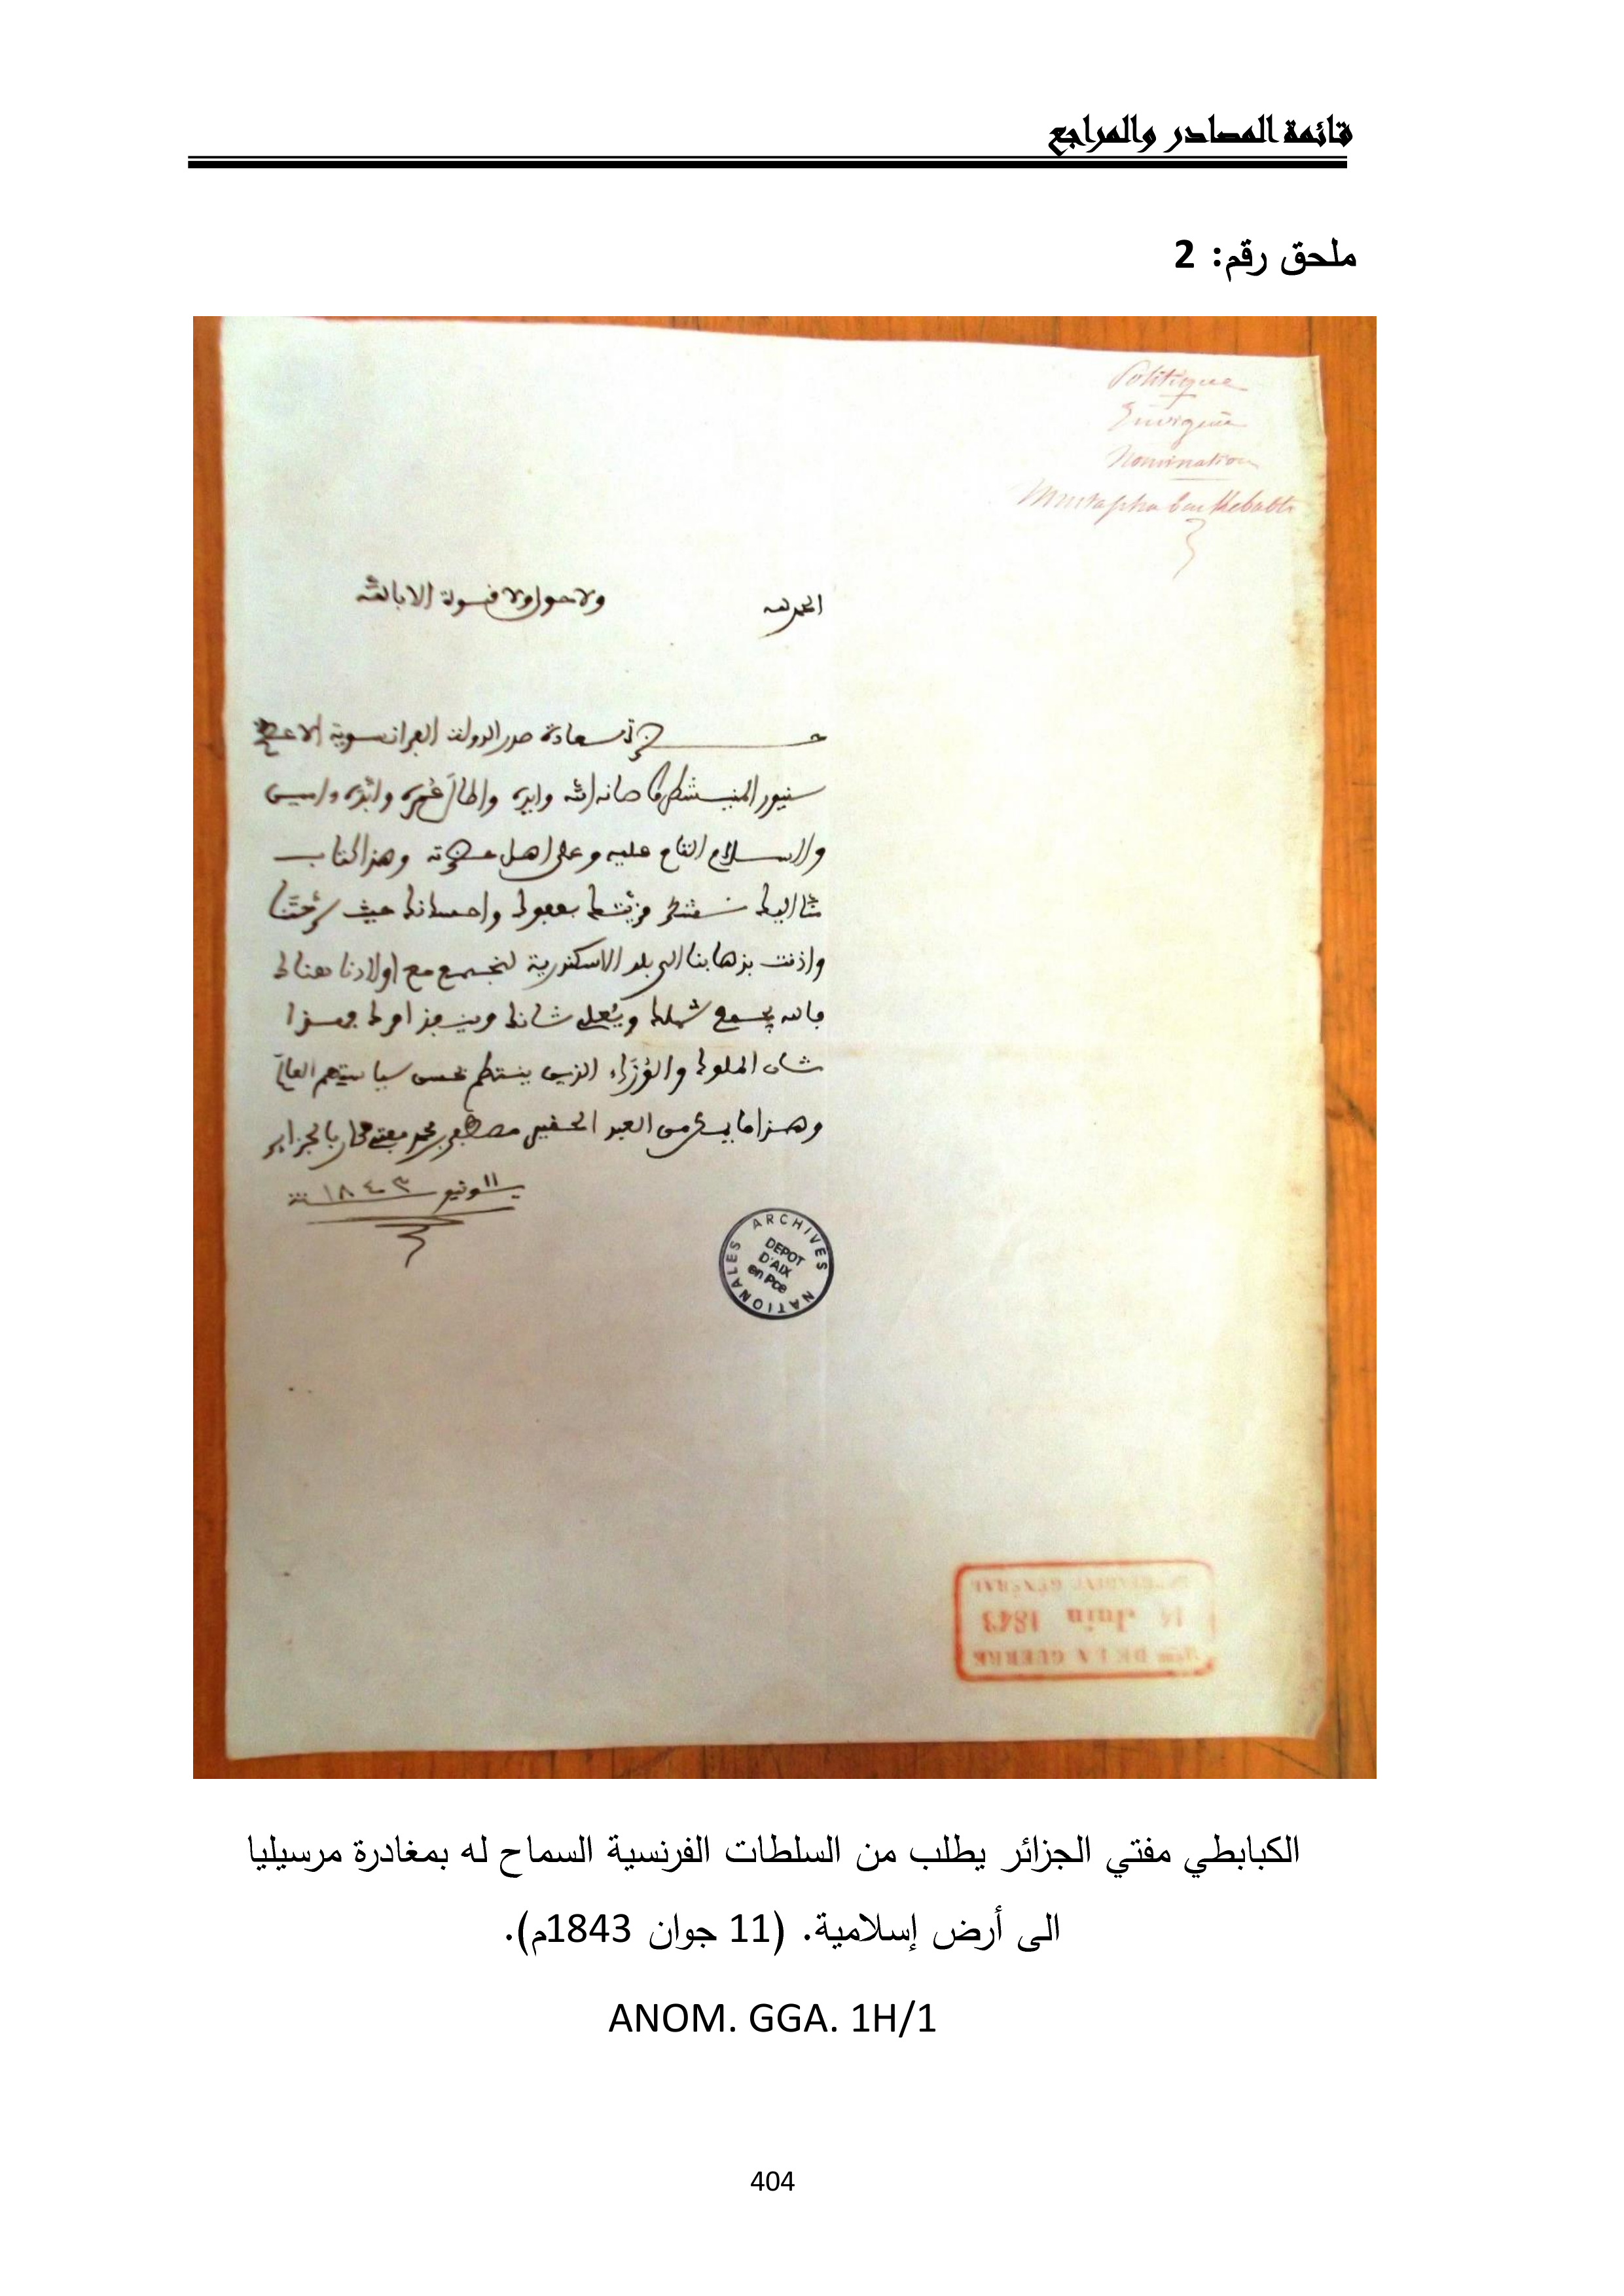 قائمة المصادر والمراجع
ملحق رقم: 2
Politique
Nomination
Mustapha ben Kebabti
الحمد لله ولا حول ولا قوة الا بالله
حضرة سعادة صدر الدولة الفرانسوية الاعظم
سنيور المنيشطرو صانه الله وايده واطال عمره وابده وامين
والسلام التام عليه وعلى اهل حضرته وهذا الكتاب
منا اليك نستكثر مزيتك بعفوك واحسانك حيث سرحتنا
واذنت بذهابنا الى بلد الاسكندرية لنجتمع مع اولادنا هناك
فالله يجمع شملك ويعلي شانك وينفذ امرك فهذا
شان الملوك والوزراء الذين ينتظم بحسن سياستهم العالم
وهذا ما من العبد الحقير مصطفى بن محمد مفتي كان بالجزاير
11 يونيو سنة ١٨٤٣
ARCHIVES NATIONALES
DEPOT
D'AIX
en Pce
GÉNÉRAL
14 Juin 1843
DE LA GUERRE
الكبابطي مفتي الجزائر يطلب من السلطات الفرنسية السماح له بمغادرة مرسيليا
الى أرض إسلامية. (11 جوان 1843م).
ANOM. GGA. 1H/1
404